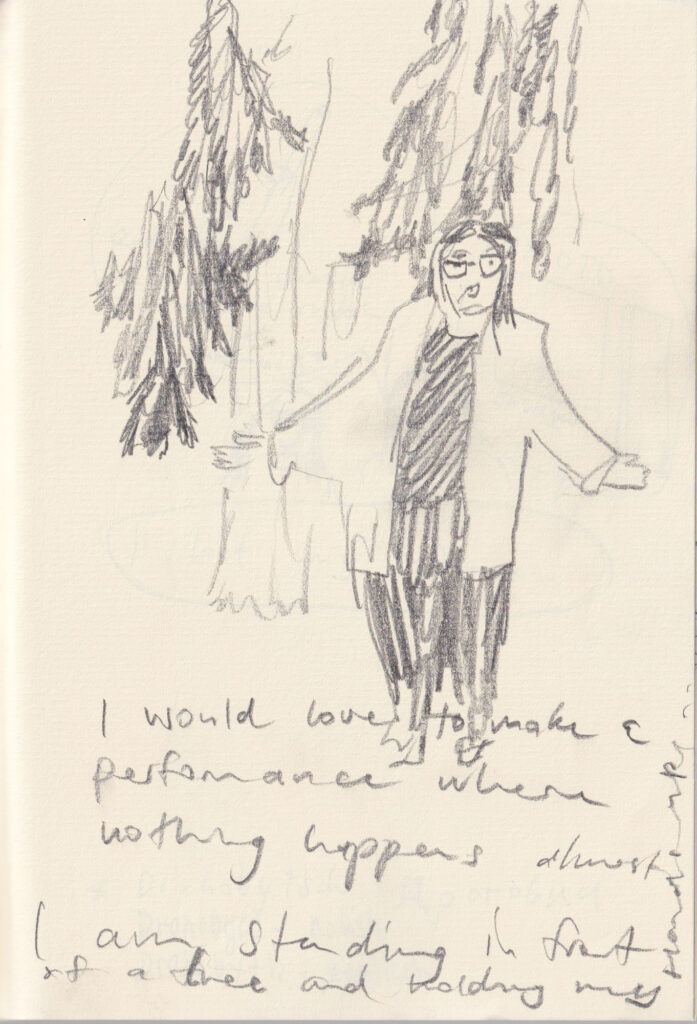 I would love to make a
perfomance where
nothing happens almost
I am standing in front
of a tree and holding my